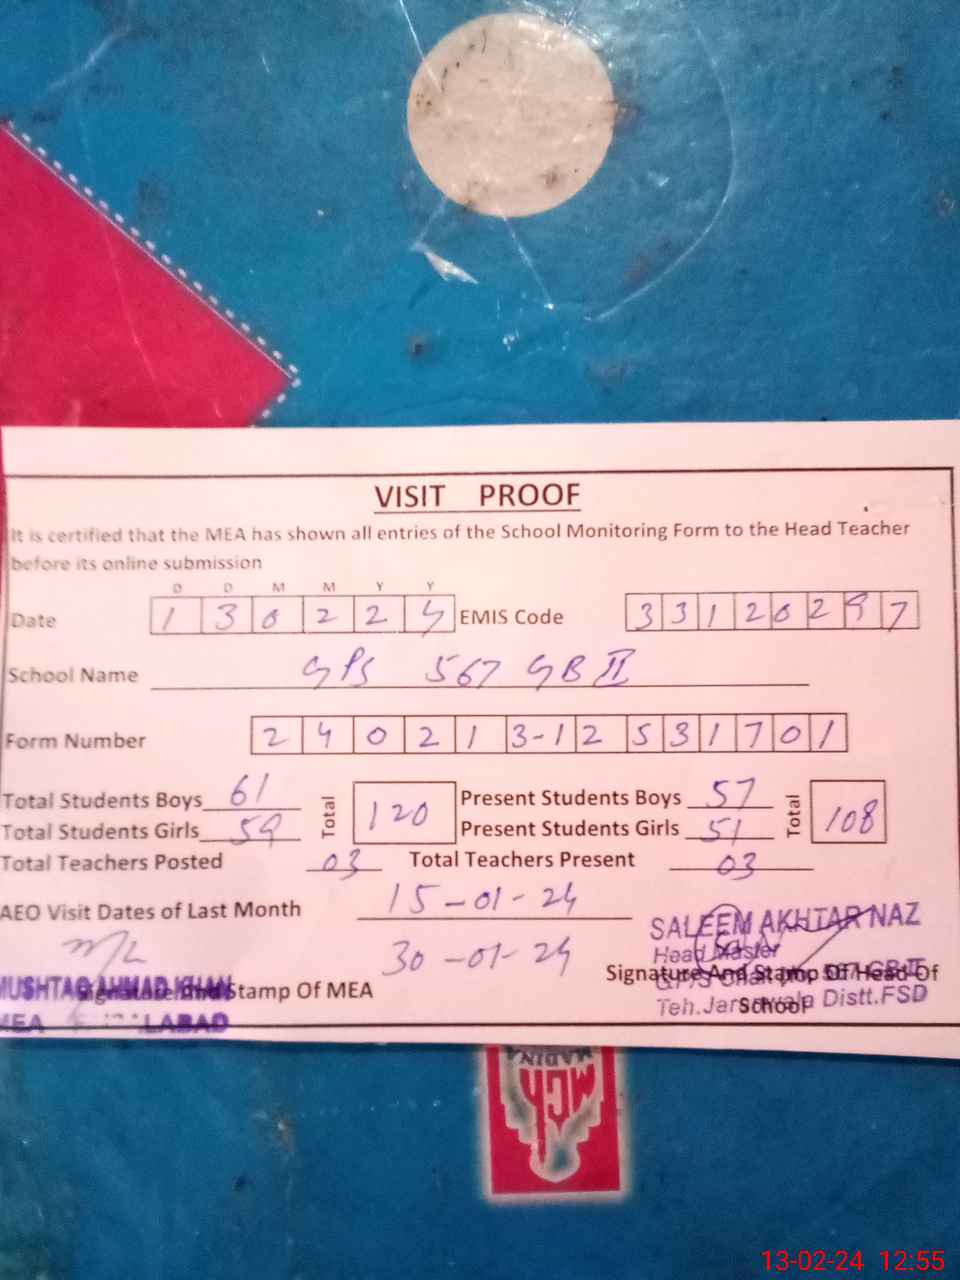 VISIT PROOF
It is certified that the MEA has shown all entries of the School Monitoring Form to the Head Teacher
before its online submission
D D M M Y Y
Date 1 3 0 2 2 4 EMIS Code 3 3 1 2 0 2 9 7
School Name GPS 567 GB II
Form Number 2 4 0 2 1 3-1 2 5 3 1 7 0 1
Total Students Boys 61 Total 120 Present Students Boys 57 Total 108
Total Students Girls 59 Present Students Girls 51
Total Teachers Posted 03 Total Teachers Present 03
AEO Visit Dates of Last Month 15-01-24
30-01-24
SALEEM AKHTAR NAZ
Head Master
Signature And Stamp Of Head Of
School
Teh. Jaranwala Distt.FSD
MUSHTAQ AHMAD KHAN
Signature And Stamp Of MEA
MEA
MADINA
MCH
13-02-24 12:55